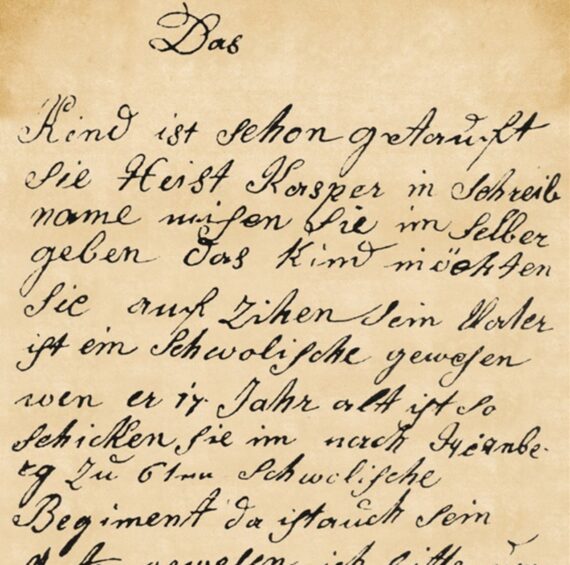 Das
Kind ist schon getauft
Sie Heist Kasper in Schreib
name misen Sie im selber
geben das Kind möchten
Sie auf Zihen Sein Vater
ist ein Schwolische gewesen
wen er 17 Jahr alt ist so
schicken Sie im nach Nirnbe-
rg zu 6ten Schwolische
Begiment da ist auch sein
gewesen ich bitte